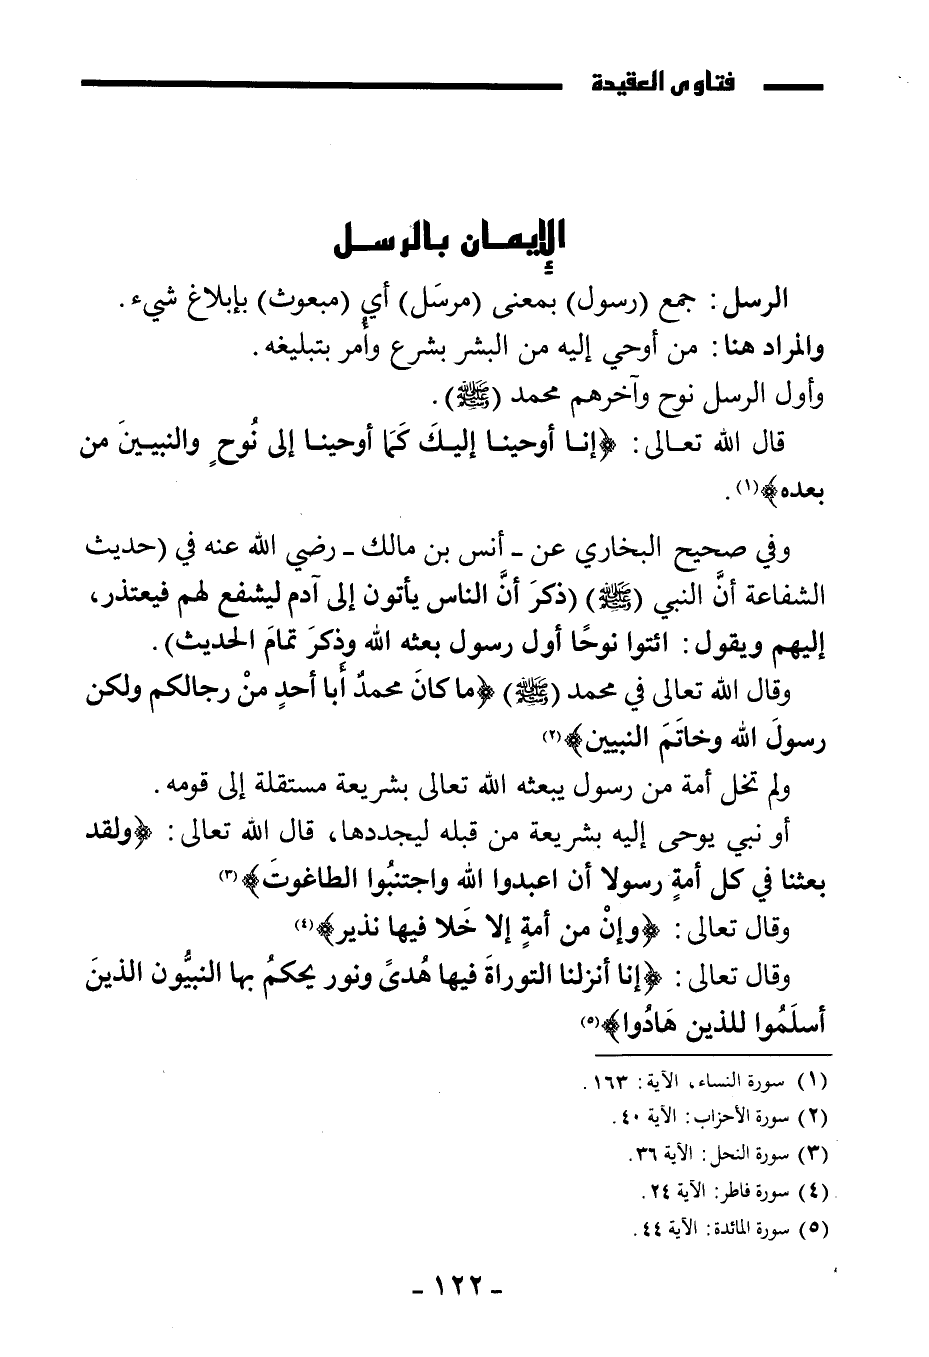 فتاوى العقيدة
الإيمان بالرسل
الرسل: جمع (رسول) بمعنى (مرسَل) أي (مبعوث) بإبلاغ شيء.
والمراد هنا: من أوحي إليه من البشر بشرع وأُمر بتبليغه.
وأول الرسل نوح وآخرهم محمد (ﷺ).
قال الله تعالى: ﴿إنا أوحينا إليكَ كَمَا أوحينا إلى نُوحٍ والنبيينَ من
بعده﴾(١).
وفي صحيح البخاري عن ـ أنس بن مالك ـ رضي الله عنه في (حديث
الشفاعة أنَّ النبي (ﷺ) (ذكرَ أنَّ الناس يأتون إلى آدم ليشفع لهم فيعتذر،
إليهم ويقول: ائتوا نوحًا أول رسول بعثه الله وذكرَ تمامَ الحديث).
وقال الله تعالى في محمد (ﷺ) ﴿ما كانَ محمدٌ أبا أحدٍ منْ رجالكم ولكن
رسولَ الله وخاتَمَ النبيين﴾(٢)
ولم تخل أمة من رسول يبعثه الله تعالى بشريعة مستقلة إلى قومه.
أو نبي يوحى إليه بشريعة من قبله ليجددها، قال الله تعالى: ﴿ولقد
بعثنا في كل أمةٍ رسولا أن اعبدوا الله واجتنبُوا الطاغوتَ﴾(٣)
وقال تعالى: ﴿وإنْ من أمةٍ إلا خَلا فيها نذير﴾(٤)
وقال تعالى: ﴿إنا أنزلنا التوراةَ فيها هُدىً ونور يحكمُ بها النبيُّون الذينَ
أسلَمُوا للذين هَادُوا﴾(٥)
(١) سورة النساء، الآية: ١٦٣.
(٢) سورة الأحزاب: الآية ٤٠.
(٣) سورة النحل: الآية ٣٦.
(٤) سورة فاطر: الآية ٢٤.
(٥) سورة المائدة: الآية ٤٤.
- ١٢٢ -